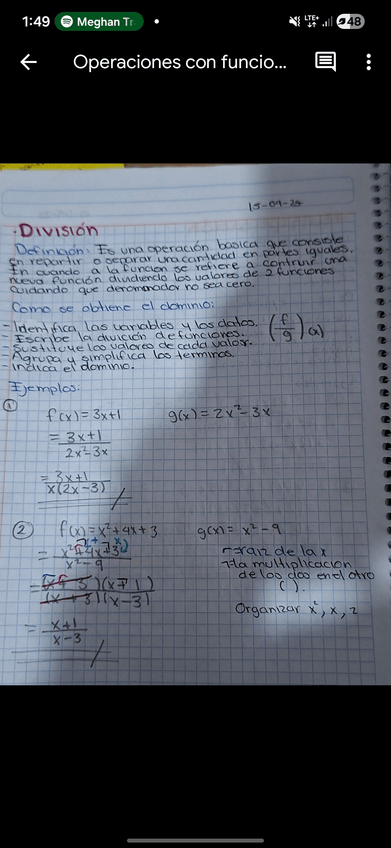 1:49 Meghan Tr LTE+ 48
Operaciones con funcio...
15-09-25
• División
Definición: Es una operación basica que consiste
en repartir o separar una cantidad en partes iguales.
En cuando a la funcion se refiere a contruir una
nueva función dividiendo los valores de 2 funciones
cuidando que deromonador no sea cero.
Como se obtiene el dominio:
- Identifica las variables y los datos.
- Escribe la división de funciones. (f/g)(x)
- Sustituye los valores de cada valor.
- Agrupa y simplifica los terminos.
- Indica el dominio.
Ejemplos:
① f(x)=3x+1 g(x)=2x²-3x
= 3x+1
2x²-3x
= 3x+1
x(2x-3)
② f(x)=x²+4x+3 g(x)= x²-9
= x²+4x+3
x²-9
raiz de la x
la multiplicacion
de los dos en el otro
( ).
= (x+3)(x+1)
(x+3)(x-3)
Organizar x², x, 2
= x+1
x-3